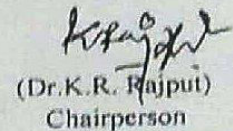 (Dr.K.R. Rajput)
Chairperson